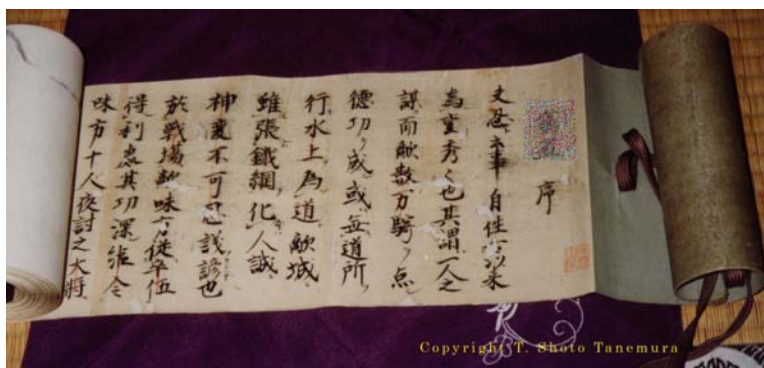 序
夫忍之事自性以来
為重秀々也其謂一人之
謀而敵数万騎ヲ点
德功ヲ成或無道所ヲ
行水上為道敵城
雖張鐵網ヲ化人誠
神変不可思議諺也
於戦場敵味方従卒伍
得利處其功深
味方十人夜討之大將
Copyright T. Shoto Tanemura